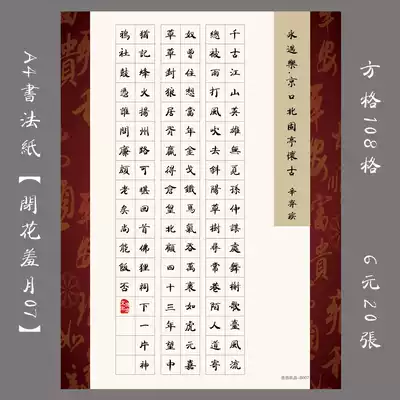 方格108格
6元20張
永遇樂·京口北固亭懷古 辛棄疾
千古江山英雄無覓孫仲謀處舞榭歌臺風流
總被雨打風吹去斜陽草樹尋常巷陌人道寄
奴曾住想當年金戈鐵馬氣吞萬裏如虎元嘉
草草封狼居胥贏得倉皇北顧四十三年望中
猶記烽火揚州路可堪回首佛狸祠下一片神
鴉社鼓憑誰問廉頗老矣尚能飯否
A4書法紙【閉花羞月07】